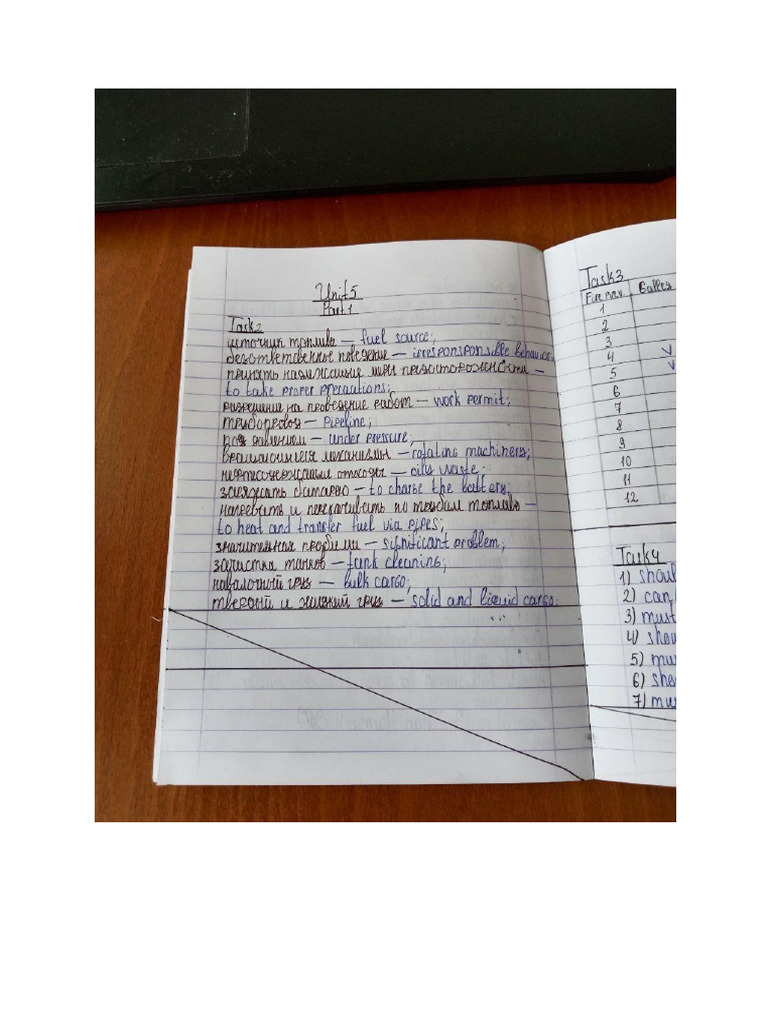 Unit 5
Part 1
Task2
источник топлива – fuel source;
безответственное поведение – irresponsponsible behavior;
принять надлежащие меры предосторожности –
to take proper precautions;
разрешение на проведение работ – work permit;
трубопровод – pipeline;
под давлением – under pressure;
вращающиеся механизмы – rotating machinery;
нефтесодержащие отходы – oily waste;
заряжать батарею – to charge the battery;
нагревать и перекачивать по трубам топливо –
to heat and transfer fuel via pipes;
значительная проблема – significant problem;
зачистка танков – tank cleaning;
навалочный груз – bulk cargo;
твердый и жидкий груз – solid and liquid cargo.
Task3
1
2
3
4 v
5 v
6
7
8
9
10
11
12
Task4
1) shoul
2) can
3) must
4) shou
5) mu
6) sho
7) mu